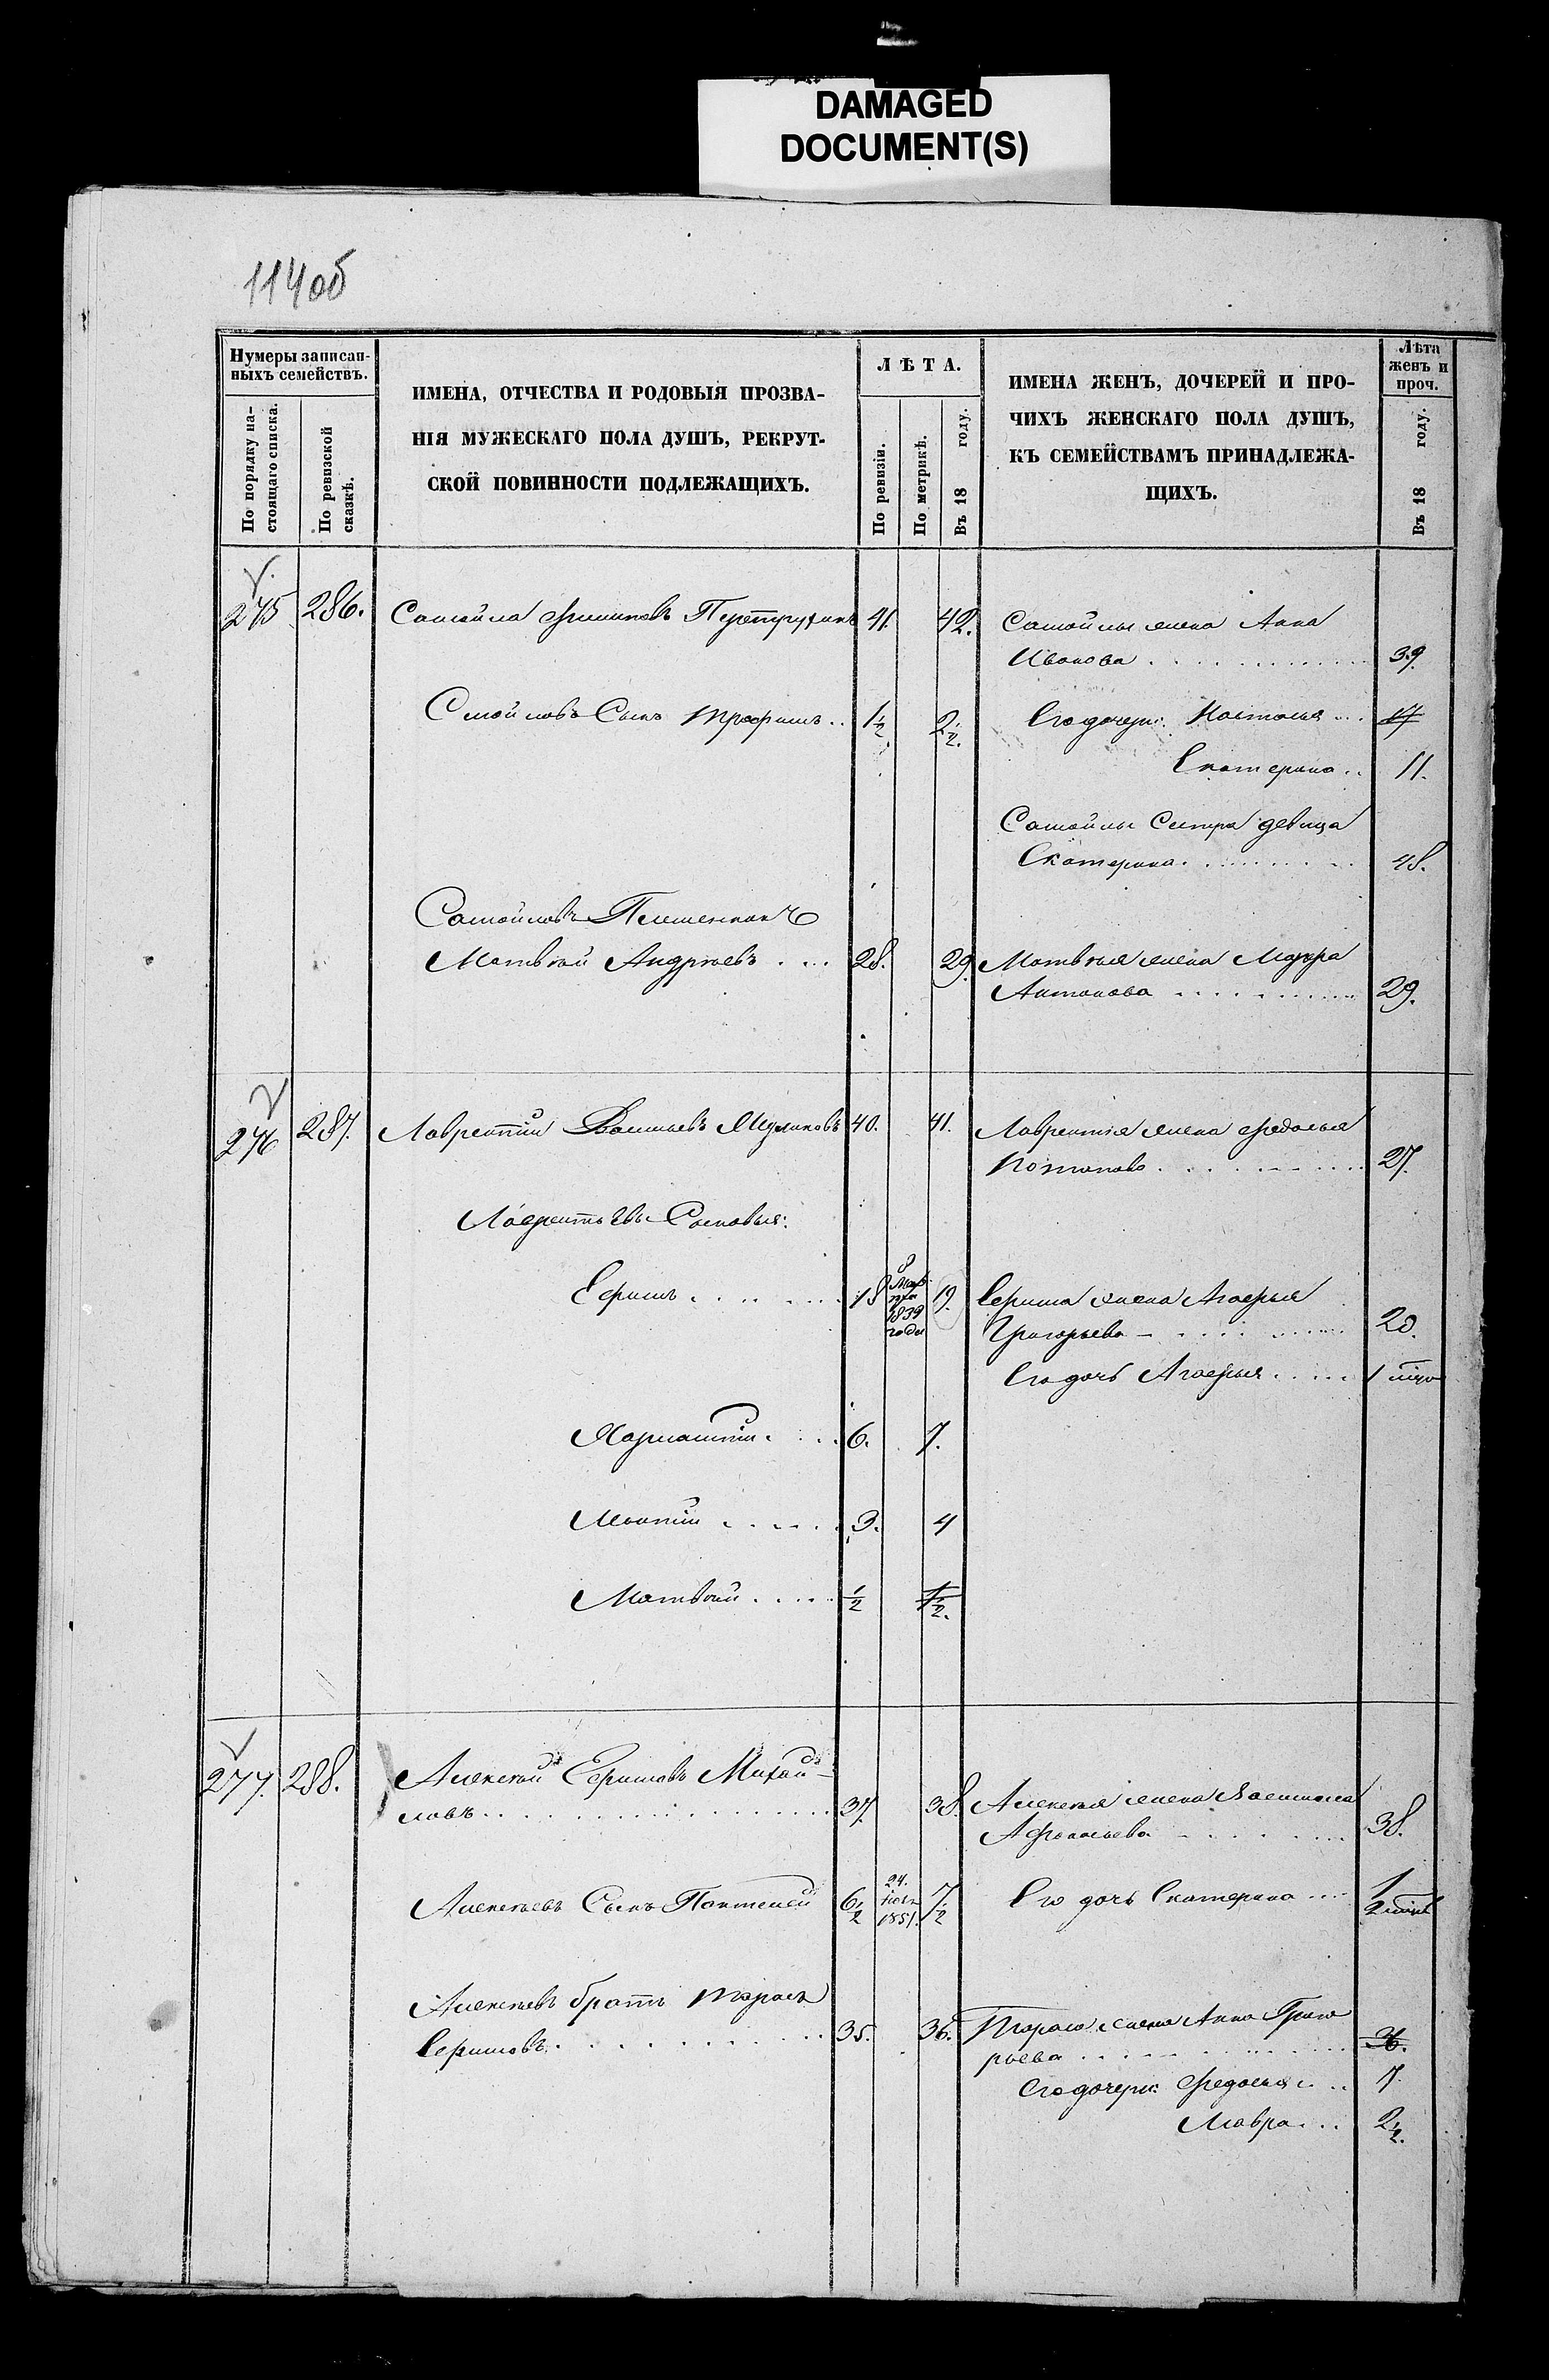 DAMAGED
DOCUMENT(S)
114об
Нумеры записан-
ныхъ семействъ.
По порядку на-
стоящаго списка.
По ревизской
сказкѣ.
ИМЕНА, ОТЧЕСТВА И РОДОВЫЯ ПРОЗВА-
НІЯ МУЖЕСКАГО ПОЛА ДУШЪ, РЕКРУТ-
СКОЙ ПОВИННОСТИ ПОДЛЕЖАЩИХЪ.
ЛѢТА.
По ревизіи.
По метрикѣ.
Въ 18 году.
ИМЕНА ЖЕНЪ, ДОЧЕРЕЙ И ПРО-
ЧИХЪ ЖЕНСКАГО ПОЛА ДУШЪ,
КЪ СЕМЕЙСТВАМЪ ПРИНАДЛЕЖА-
ЩИХЪ.
Лѣта
женъ и
проч.
Въ 18 году.
275 286. Самойла 41. 42. Самойлы жена Анна
Иванова 39.
Смойловъ Сынъ Трофимъ 1/2 2 1/2. Его дочери: Настасья 17
Екатерина 11.
Самойлы Сестра девица
Екатерина 48.
Самойловъ Племенникъ
Матвѣй Андрѣевъ 28. 29. Матвѣя жена
Антонова 29.
276 287. Лаврентій Васильевъ 40. 41. Лаврентія жена Федосья
Потапова 27.
Лаврентьевы Сыновья:
Ефимъ 18 1839 года 19. Ефима жена Агафья
Григорьева 20.
Его дочь Агафья 1
6. 7.
3. 4
Матвѣй 1/2 1 1/2.
277. 288. Алексѣй Ефимовъ Михай-
ловъ 37. 38. Алексѣя жена
Афонасьева 38.
Алексѣевъ Сынъ Пантелей 6 1/2 24. 1851. 7 1/2 Его дочь Екатерина 1/2
Алексѣевъ братъ Тарасъ
Ефимовъ 35. 36. Тараса жена Анна Григо
рьева 36.
Его дочери: Федосья 7.
Мавра 2 1/2.